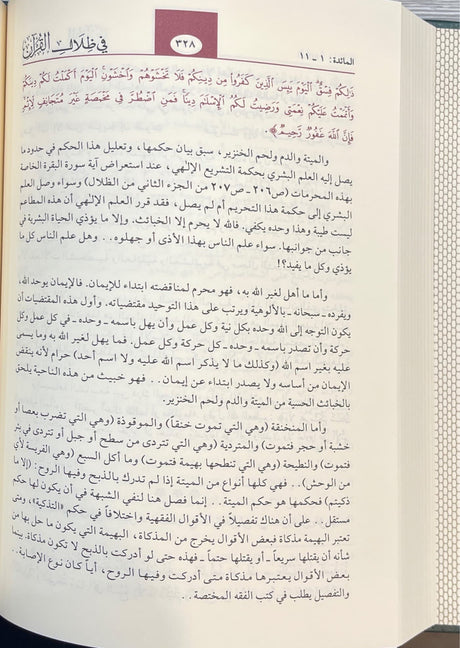 المائدة: ١ - ١١
٣٢٨
في ظلال القرآن
ذَٰلِكُمْ فِسْقٌ الْيَوْمَ يَئِسَ الَّذِينَ كَفَرُوا مِن دِينِكُمْ فَلَا تَخْشَوْهُمْ وَاخْشَوْنِ الْيَوْمَ أَكْمَلْتُ لَكُمْ دِينَكُمْ
وَأَتْمَمْتُ عَلَيْكُمْ نِعْمَتِي وَرَضِيتُ لَكُمُ الْإِسْلَٰمَ دِينًا فَمَنِ اضْطُرَّ فِي مَخْمَصَةٍ غَيْرَ مُتَجَانِفٍ لِإِثْمٍ
فَإِنَّ اللَّهَ غَفُورٌ رَّحِيمٌ﴾.
والميتة والدم ولحم الخنزير، سبق بيان حكمها، وتعليل هذا الحكم في حدود ما
يصل إليه العلم البشري بحكمة التشريع الإلٰهي، عند استعراض آية سورة البقرة الخاصة
بهذه المحرمات (ص٢٠٦ - ص٢٠٧ من الجزء الثاني من الظلال) وسواء وصل العلم
البشري إلى حكمة هذا التحريم أم لم يصل، فقد قرر العلم الإلٰهي أن هذه المطاعم
ليست طيبة وهذا وحده يكفي. فالله لا يحرم إلا الخبائث. وإلا ما يؤذي الحياة البشرية في
جانب من جوانبها. سواء علم الناس بهذا الأذى أو جهلوه.. وهل علم الناس كل ما
يؤذي وكل ما يفيد؟!
وأما ما أهل لغير الله به، فهو محرم لمناقضته ابتداء للإيمان. فالإيمان يوحد الله،
ويفرده ـ سبحانه ـ بالألوهية ويرتب على هذا التوحيد مقتضياته. وأول هذه المقتضيات أن
يكون التوجه إلى الله وحده بكل نية وكل عمل وأن يهل باسمه ـ وحده ـ في كل عمل وكل
حركة وأن تصدر باسمه ـ وحده ـ كل حركة وكل عمل. فما يهل لغير الله به وما يسمى
عليه بغير اسم الله (وكذلك ما لا يذكر اسم الله عليه ولا اسم أحد) حرام لأنه ينقض
الإيمان من أساسه ولا يصدر ابتداء عن إيمان.. فهو خبيث من هذه الناحية يلحق
بالخبائث الحسية من الميتة والدم ولحم الخنزير.
وأما المنخنقة (وهي التي تموت خنقاً) والموقوذة (وهي التي تضرب بعصا أو
خشبة أو حجر فتموت) والمتردية (وهي التي تتردى من سطح أو جبل أو تتردى في بئر
فتموت) والنطيحة (وهي التي تنطحها بهيمة فتموت) وما أكل السبع (وهي الفريسة لأي
من الوحش).. فهي كلها أنواع من الميتة إذا لم تدرك بالذبح وفيها الروح: (إلا ما
ذكيتم) فحكمها هو حكم الميتة.. إنما فصل هنا لنفي الشبهة في أن يكون لها حكم
مستقل.. على أن هناك تفصيلاً في الأقوال الفقهية واختلافاً في حكم «التذكية»، ومتى
تعتبر البهيمة مذكاة فبعض الأقوال يخرج من المذكاة، البهيمة التي يكون ما حل بها من
شأنه أن يقتلها سريعاً ـ أو يقتلها حتماً ـ فهذه حتى لو أدركت بالذبح لا تكون مذكاة. بينما
بعض الأقوال يعتبرها مذكاة متى أدركت وفيها الروح، أياً كان نوع الإصابة..
والتفصيل يطلب في كتب الفقه المختصة..